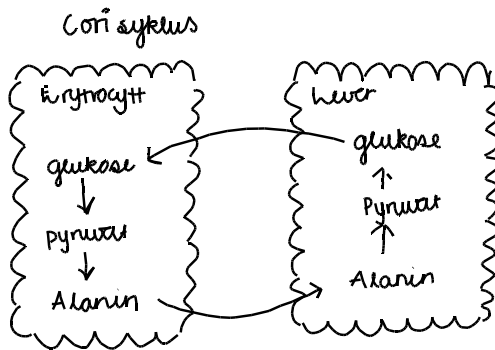 Cori syklus
Erytrocytt
glukose
pyruvat
Alanin
Lever
glukose
Pyruvat
Alanin